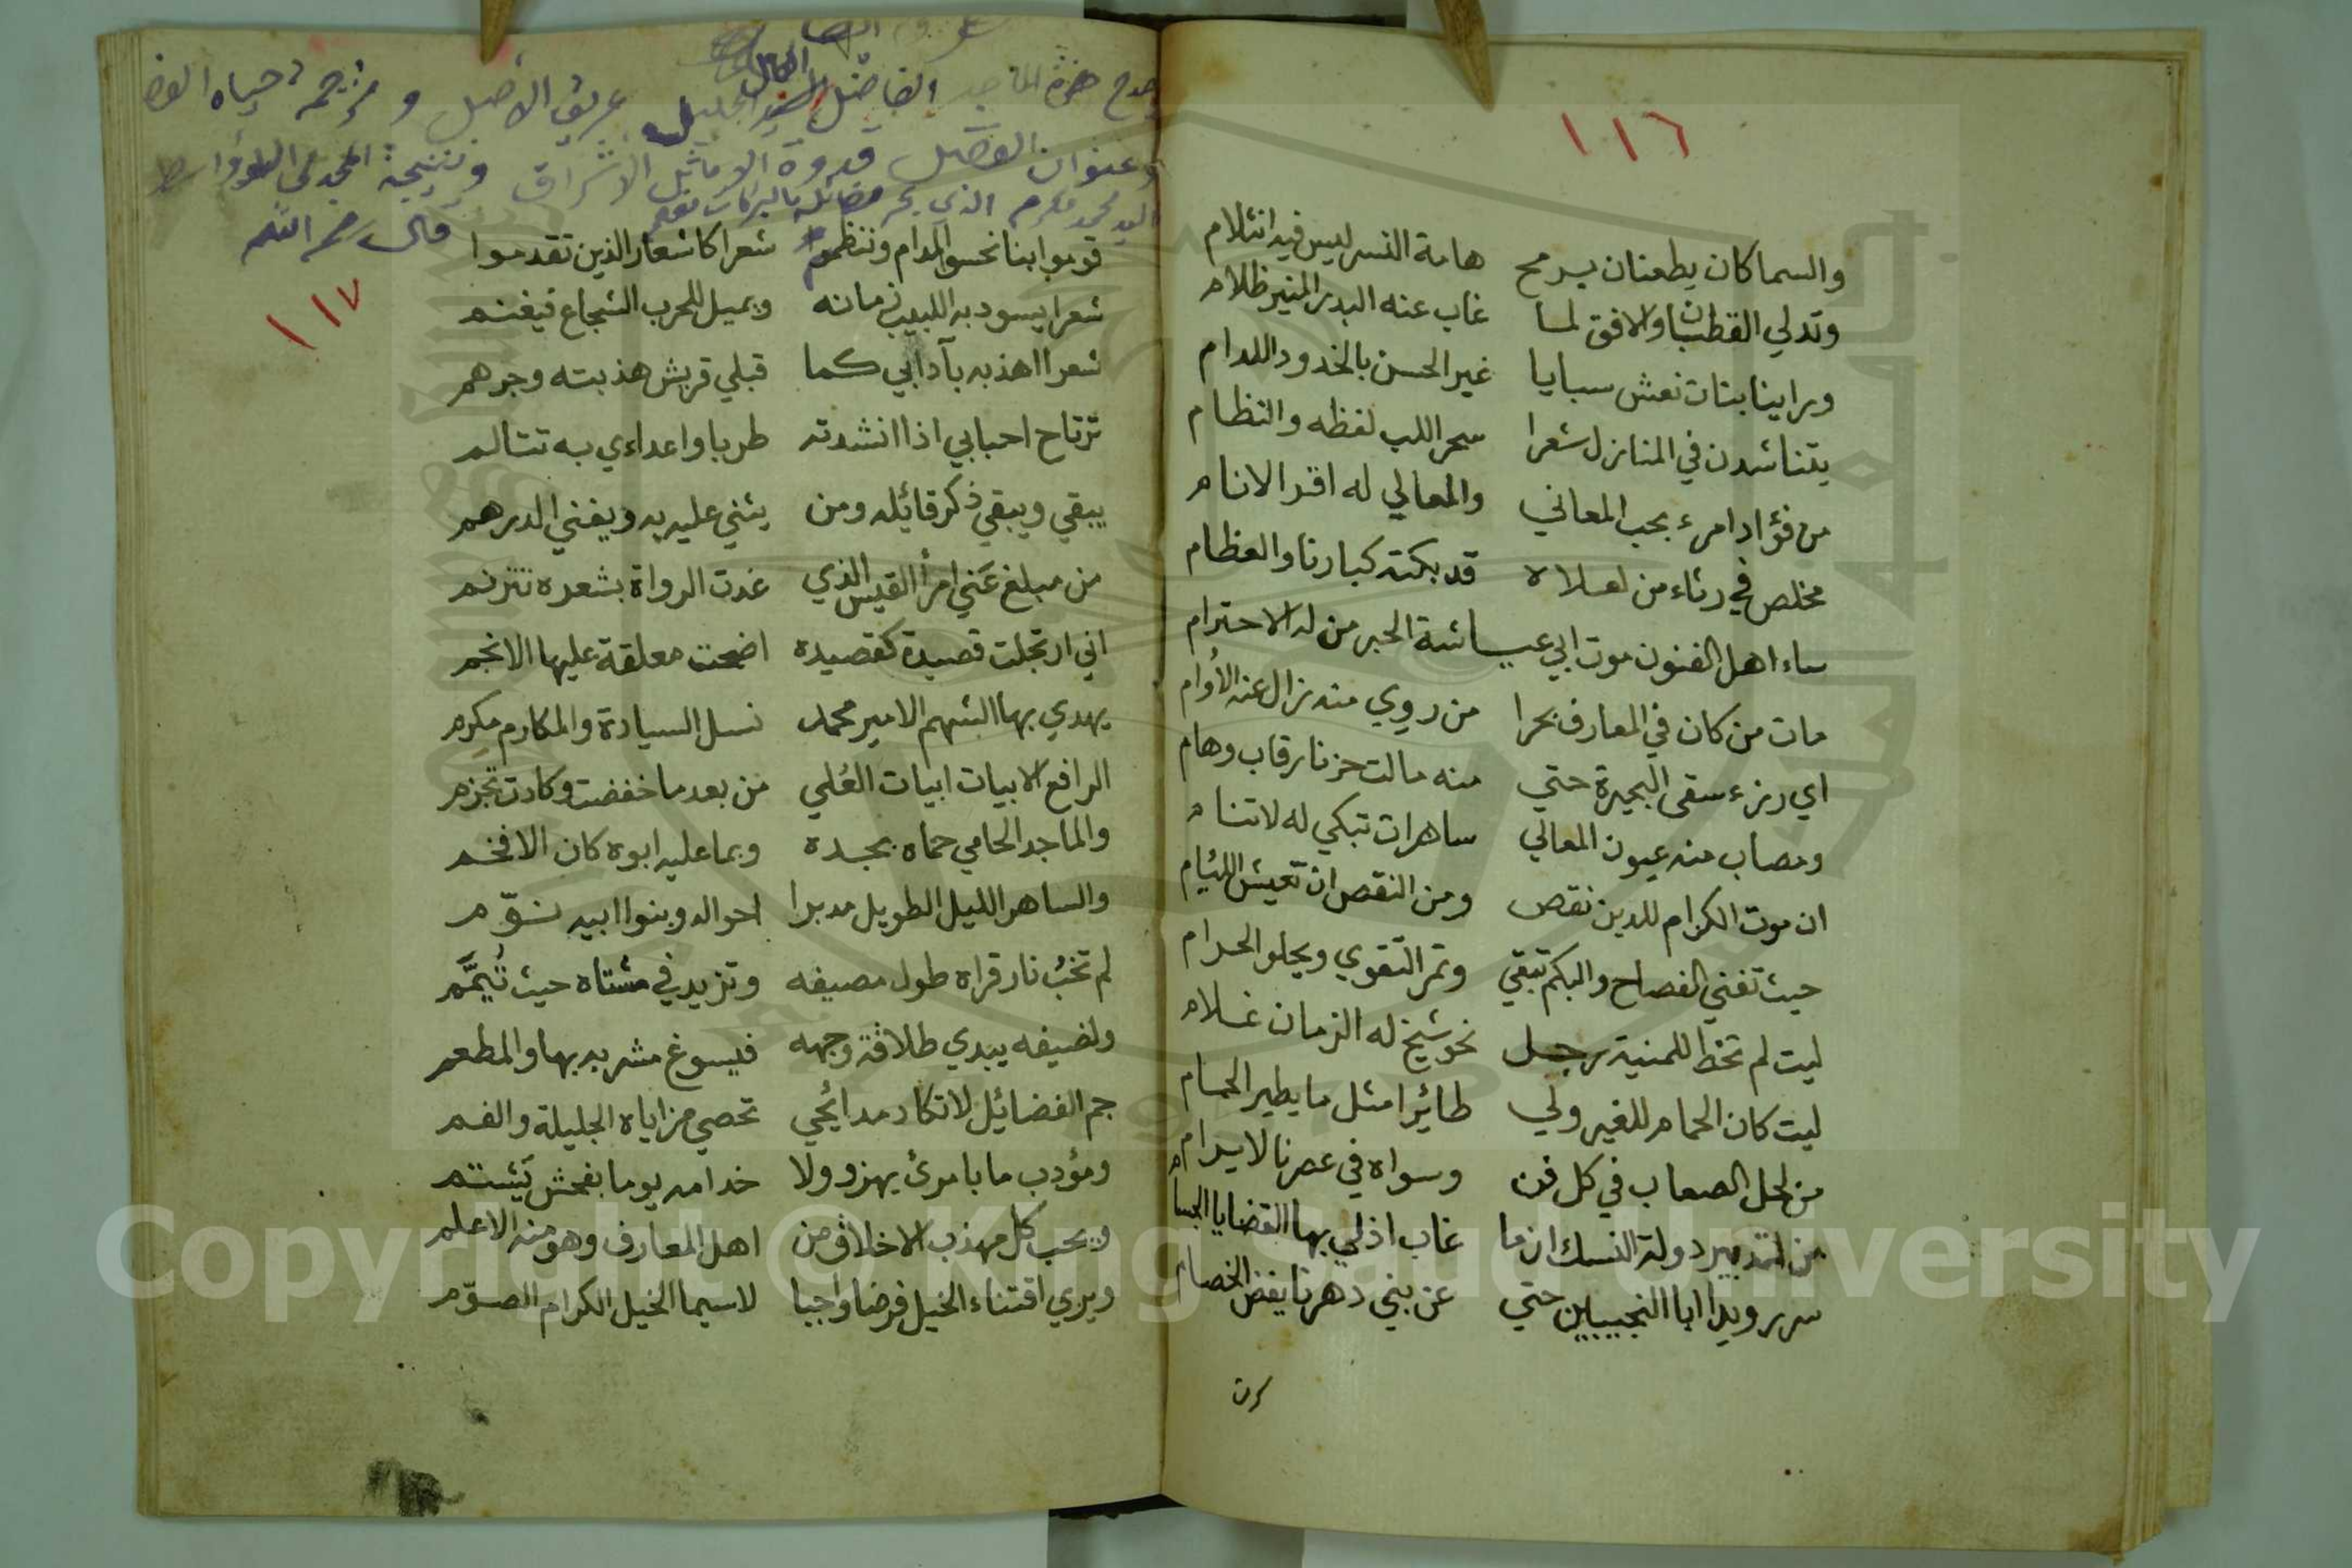 ١١٦
والسماكان يطعنان برمح هامة النسر ليس فيه انثلام
وتدلي القطبان والافق لما غاب عنه البدر المنير ظلام
وراينا بنات نعش سبايا غير الحسن بالخدود اللدام
يتناشدن في المنازل شعرا سحر اللب لفظه والنظام
من فؤاد امرء بحب المعاني والمعالي له اقر الانام
مخلص في رثاء من لعلاه قد بكته كبارنا والعظام
ساء اهل الفنون موت ابي عيـاشة الحبر من له الاحترام
مات من كان في المعارف بحرا من روي منه زال عنه الأوام
اي رزء سقى البحيرة حتي منه مالت حزنا رقاب وهام
ومصاب منه عيون المعالي ساهرات تبكي له لاتنام
ان موت الكرام للدين نقص ومن النقص ان تعيش اللئام
حيث تفني الفصاح والبكم تبقي وتمر التقوي ويحلو الحرام
ليت لم تخط للمنية رجل نحو شيخ له الزمان غلام
ليت كان الحمام للغير ولي طائرا مثل ما يطير الحمام
من لحل الصعاب في كل فن وسواه في عصرنا لا يرام
من لتدبير دولة النسك ان ما غاب اذ لي بها القضايا الجسام
سر رويدا ابا النجيبين حتي عن بني دهرنا يفض الخصام
الفاضل الجليل عريق الأصل و
وعنوان الفضل قدوة الاماثل الاشراق ونتيجة
السيد محمد مكرم الذي بحر فضائله
قال رحمه الله
١١٧
قوموا بنا نحسو المدام وننظم شعرا كاشعار الذين تقدموا
شعرا يسود به اللبيب زمانه ويميل للحرب الشجاع فيغنم
شعرا اهذبه بآدابي كما قبلي قريش هذبته وجرهم
ترتاح احبابي اذا انشدته طربا واعداءي به تتالم
يبقي ويبقي ذكر قائله ومن يثني عليه به ويفني الدرهم
من مبلغ عني امرأ القيس الذي غدت الرواة بشعره تترنم
اني ارتجلت قصيدة كقصيدة اضحت معلقة عليها الانجم
يهدي بها الشهم الامير محمد نسل السيادة والمكارم مكرم
الرافع الابيات ابيات العُلي من بعد ما خفضت وكادت تجزم
والماجد الحامي حماه بجده وبما عليه ابوه كان الافخم
والساهر الليل الطويل مدبرا احواله وبنوا ابيه نوّم
لم تخبُ نار قراه طول مصيفه وتزيد في مشتاه حيث تُيمَّم
ولضيفه يبدي طلاقة وجهه فيسوغ مشربه بها والمطعم
جم الفضائل لاتكاد مدائحي تحصي مزاياه الجليلة والفم
ومؤدب ما بامرئ يهزو ولا خدامه يوما بفحش تَشتم
ويحب كل مهذب الاخلاق من اهل المعارف وهو منه الاعلم
ويري اقتناء الخيل فرضا واجبا لاسيما الخيل الكرام الصوّم